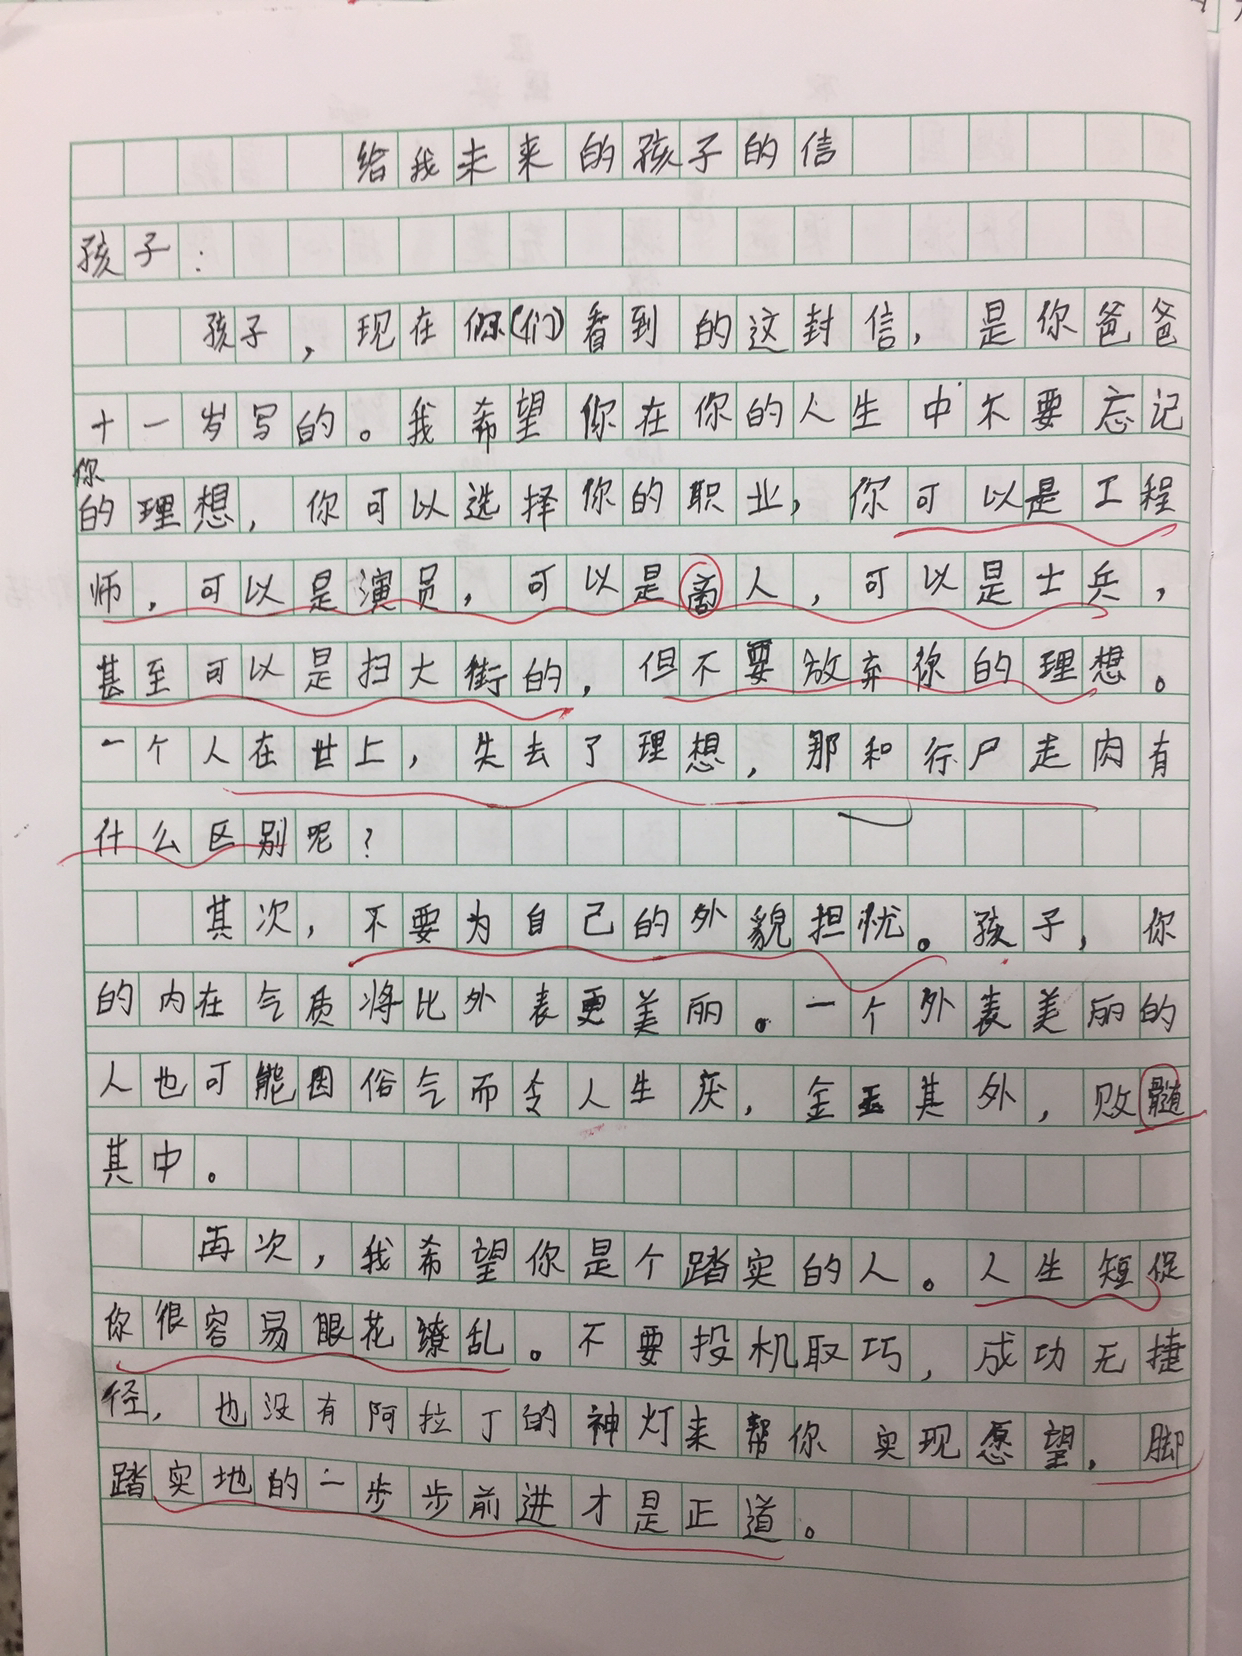 给我未来的孩子的信
孩子：
孩子，现在你(们)看到的这封信，是你爸爸
十一岁写的。我希望你在你的人生中不要忘记
你
的理想，你可以选择你的职业，你可以是工程
师，可以是演员，可以是商人，可以是士兵，
甚至可以是扫大街的，但不要放弃你的理想。
一个人在世上，失去了理想，那和行尸走肉有
什么区别呢？
其次，不要为自己的外貌担忧。孩子，你
的内在气质将比外表更美丽。一个外表美丽的
人也可能因俗气而令人生厌，金玉其外，败髓
其中。
再次，我希望你是个踏实的人。人生短促
你很容易眼花缭乱。不要投机取巧，成功无捷
径，也没有阿拉丁的神灯来帮你实现愿望，脚
踏实地的一步步前进才是正道。